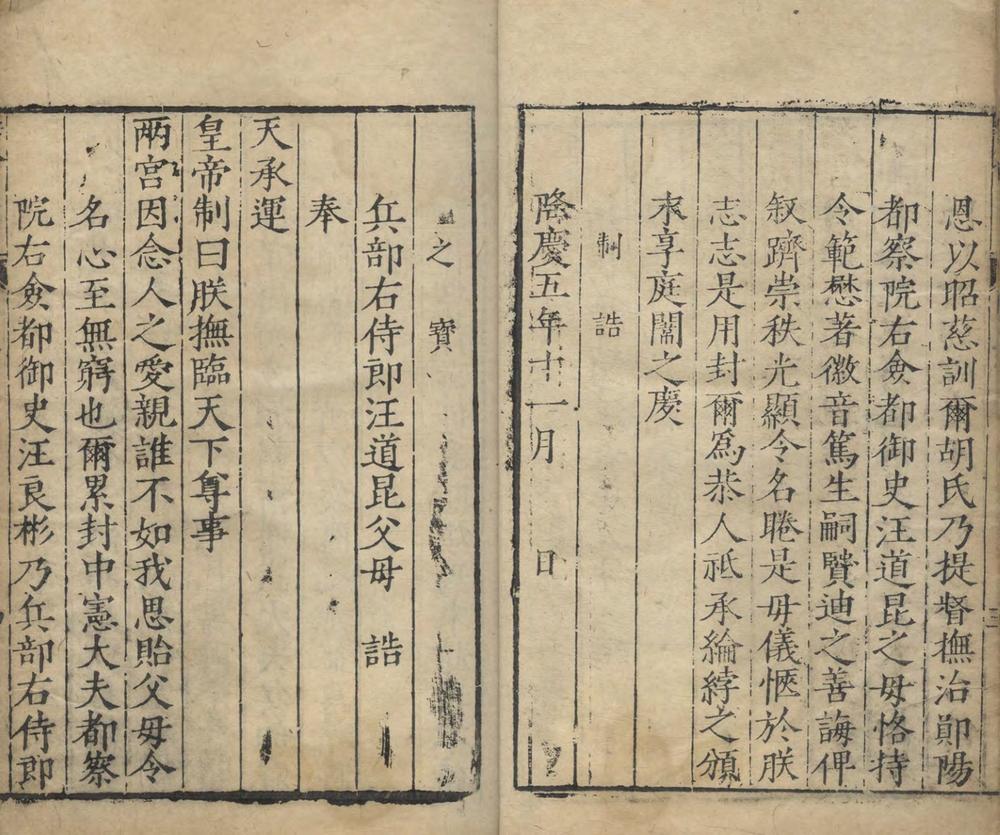 恩以昭慈訓爾胡氏乃提督撫治鄖陽
都察院右僉都御史汪道昆之母恪持
令範懋著徽音篤生嗣賢迪之善誨俾
叙躋崇秩光顯令名睠是母儀愜於朕
志志是用封爾爲恭人祗承綸綍之頒
永享庭闈之慶
制誥
隆慶五年十一月 日
之寶
兵部右侍郎汪道昆父母 誥
奉
天承運
皇帝制曰朕撫臨天下尊事
兩宮因念人之愛親誰不如我思貽父母令
名心至無窮也爾累封中憲大夫都察
院右僉都御史汪良彬乃兵部右侍郎